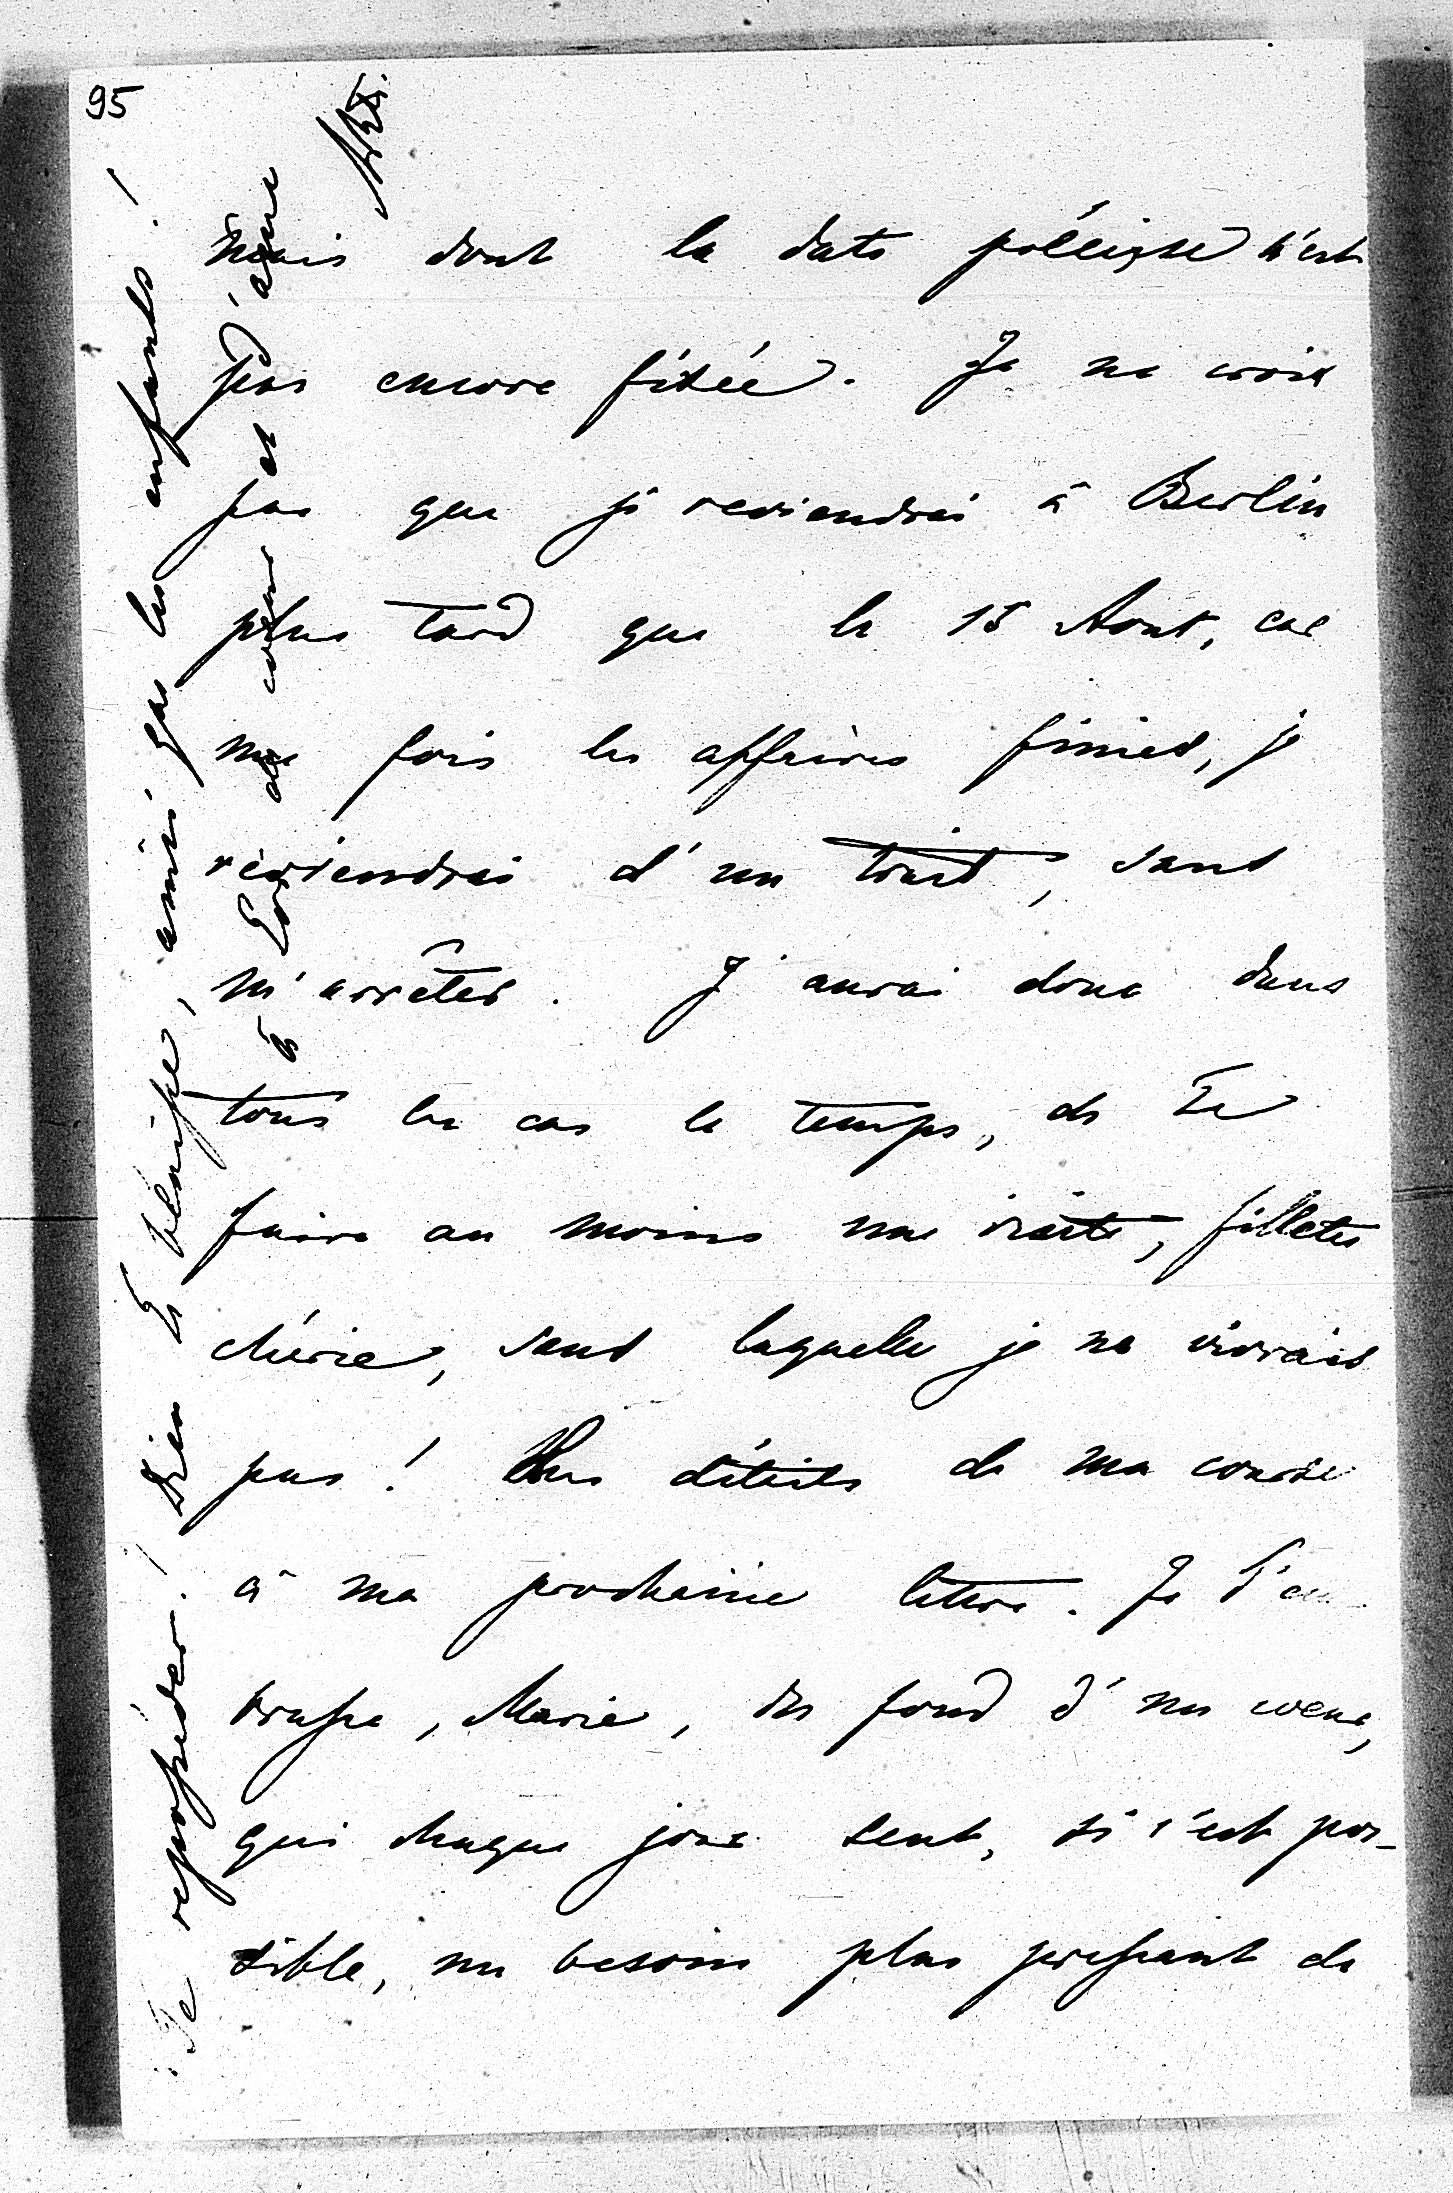 95
mais dont la date précise n'est
pas encore fixée. Je ne crois
pas que je reviendrai à Berlin
plus tard que le 15 Aout, car
une fois les affaires finies, je
reviendrai d'un trait, sans
m'arrêter. J'aurai donc dans
tous les cas le temps, de Te
faire au moins une visite, fillette
chérie, sans laquelle je ne vivrais
pas! Plus détails de ma course
à ma prochaine lettre. Je T'em
brasse, Marie, du fond d'un coeur,
qui chaque jour sent, si c'est pos-
sible, un besoin plus pressant de
Te reposséder! Dieu Te bénisse, ainsi que les enfants!
à Toi de coeur et d'âme